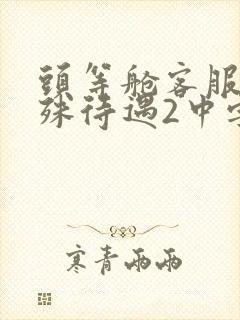 頭等舱客服
殊待遇2中字
寒青雨雨